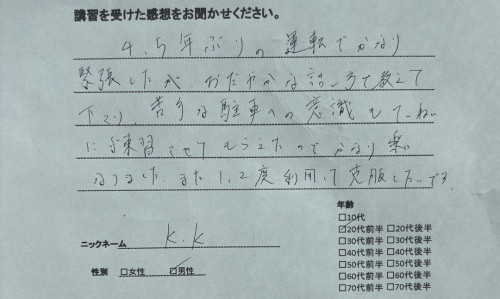 講習を受けた感想をお聞かせください。
4、5年ぶりの運転でかなり
緊張したが、おだやかな話し方で教えて
下さり、苦手な駐車への意識もていねい
に練習させてもらえたのでかなり楽に
なりました。また1、2度利用して克服したいです
年齢
□10代
☑20代前半 □20代後半
□30代前半 □30代後半
□40代前半 □40代後半
□50代前半 □50代後半
□60代前半 □60代後半
□70代前半 □70代後半
ニックネーム K.K
性別 □女性 ☑男性